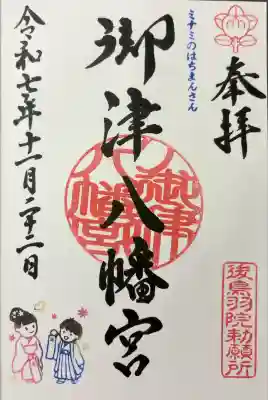 奉拝
ミナミのはちまんさん
御津八幡宮
令和七年十一月二十二日
後鳥羽院勅願所
御津八幡宮